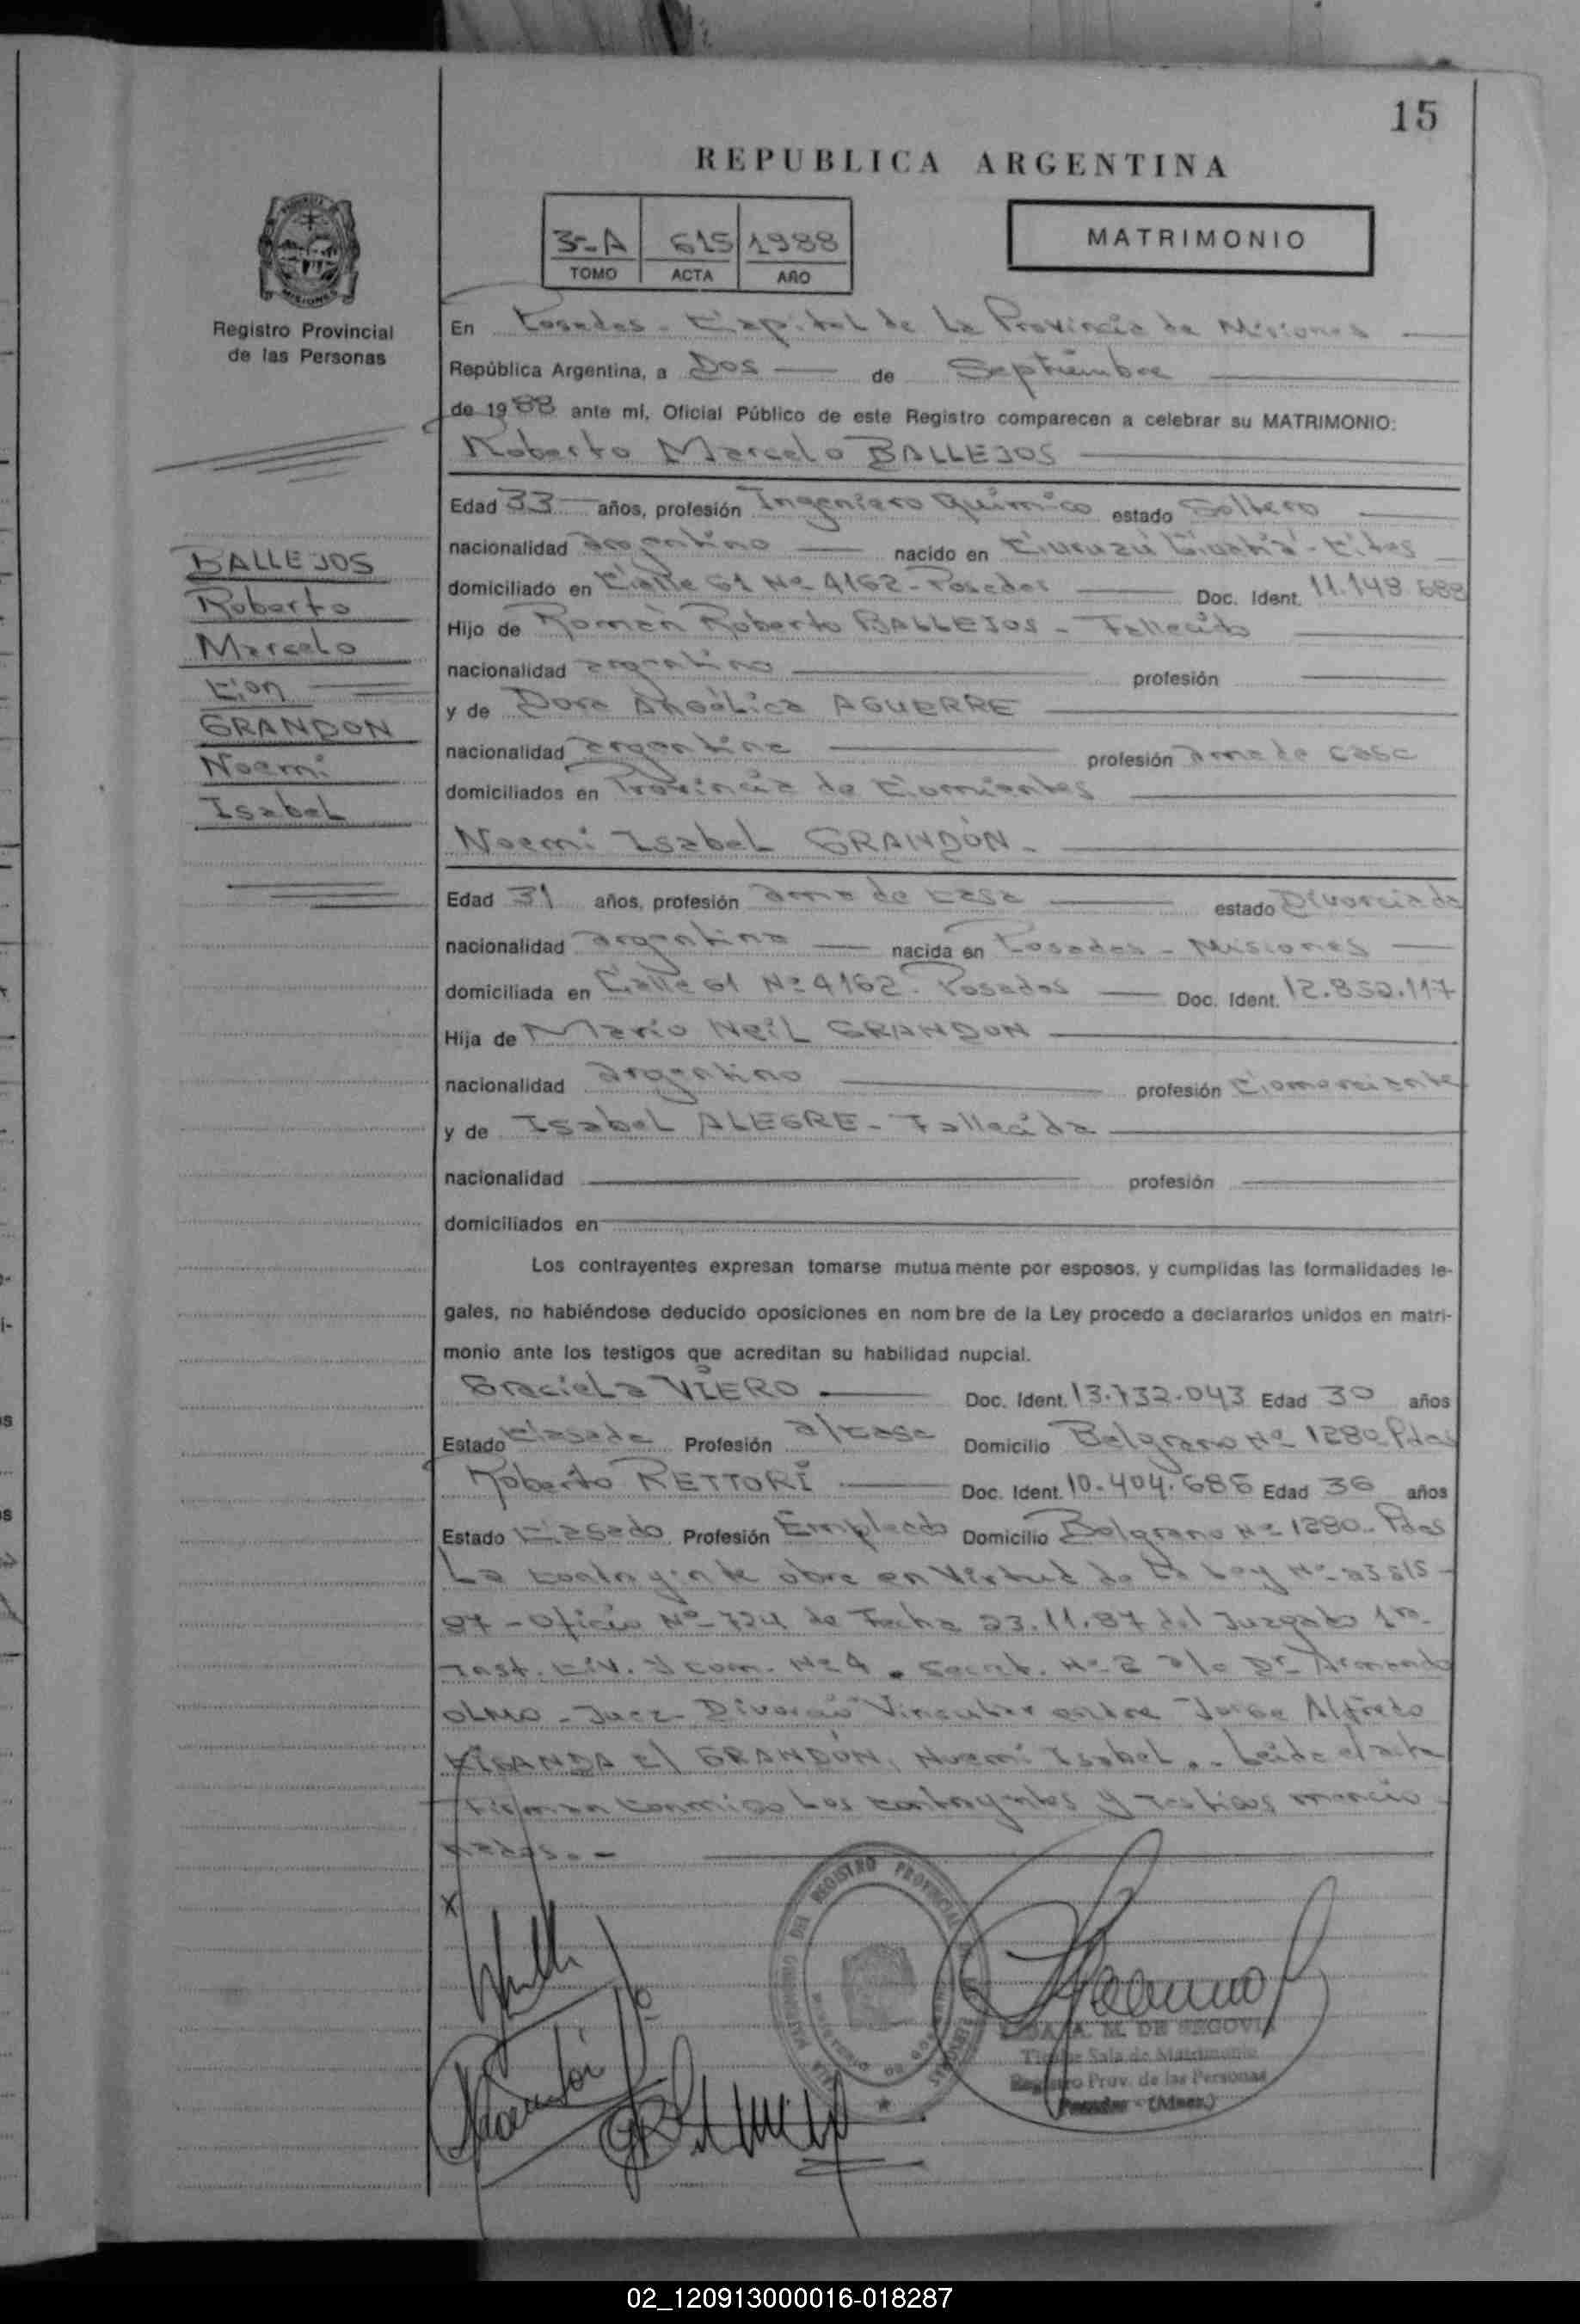 15
REPUBLICA ARGENTINA
3º-A 615 1988
TOMO ACTA AÑO
MATRIMONIO
Registro Provincial
de las Personas
En Posadas - Capital de La Provincia de Misiones
República Argentina, a Dos de Septiembre
de 1988 ante mí, Oficial Público de este Registro comparecen a celebrar su MATRIMONIO:
Roberto Marcelo BALLEJOS
Edad 33 años, profesión Ingeniero Químico estado Soltero
nacionalidad argentino nacido en Curuzú Cuatiá - Ctes
domiciliado en Calle 61 Nº 4162 - Posadas Doc. Ident. 11.149.688
Hijo de Román Roberto BALLEJOS - Fallecido
nacionalidad argentino profesión
y de Dora Angélica AGUERRE
nacionalidad argentina profesión ama de casa
domiciliados en Provincia de Corrientes
BALLEJOS
Roberto
Marcelo
Con
GRANDON
Noemi
Isabel
Noemi Isabel GRANDÓN.
Edad 31 años, profesión ama de casa estado Divorciada
nacionalidad argentina nacida en Posadas - Misiones
domiciliada en Calle 61 Nº 4162 - Posadas Doc. Ident. 12.852.117
Hija de Mario Neil GRANDON
nacionalidad argentino profesión Comerciante
y de Isabel ALEGRE - Fallecida
nacionalidad profesión
domiciliados en
Los contrayentes expresan tomarse mutua mente por esposos, y cumplidas las formalidades le-
gales, no habiéndose deducido oposiciones en nom bre de la Ley procedo a declararlos unidos en matri-
monio ante los testigos que acreditan su habilidad nupcial.
Graciela VIERO Doc. Ident. 13.732.043 Edad 30 años
Estado Casada Profesión a/casa Domicilio Belgrano Nº 1280 Pdas
Roberto RETTORI Doc. Ident. 10.404.686 Edad 36 años
Estado Casado Profesión Empleado Domicilio Belgrano Nº 1280 - Pdas
La contrayente obra en Virtud de La Ley Nº 23515 -
87 - Oficio Nº 724 de Fecha 23.11.87 del Juzgado 1ra
Inst. Civ. y Com. Nº 4. Secret. Nº 2 a/c Dr. Armando
OLMO - Juez - Divorcio Vincular entre Jorge Alfredo
C/ GRANDÓN, Noemi Isabel.- Leída el acta
Firman conmigo Los contrayentes y testigos mencio
nados.-
X
REGISTRO PROVINCIAL
A. M. DE SEGOVIA
Titular Sala de Matrimonio
Registro Prov. de las Personas
Posadas - (Mnes.)
02_120913000016-018287